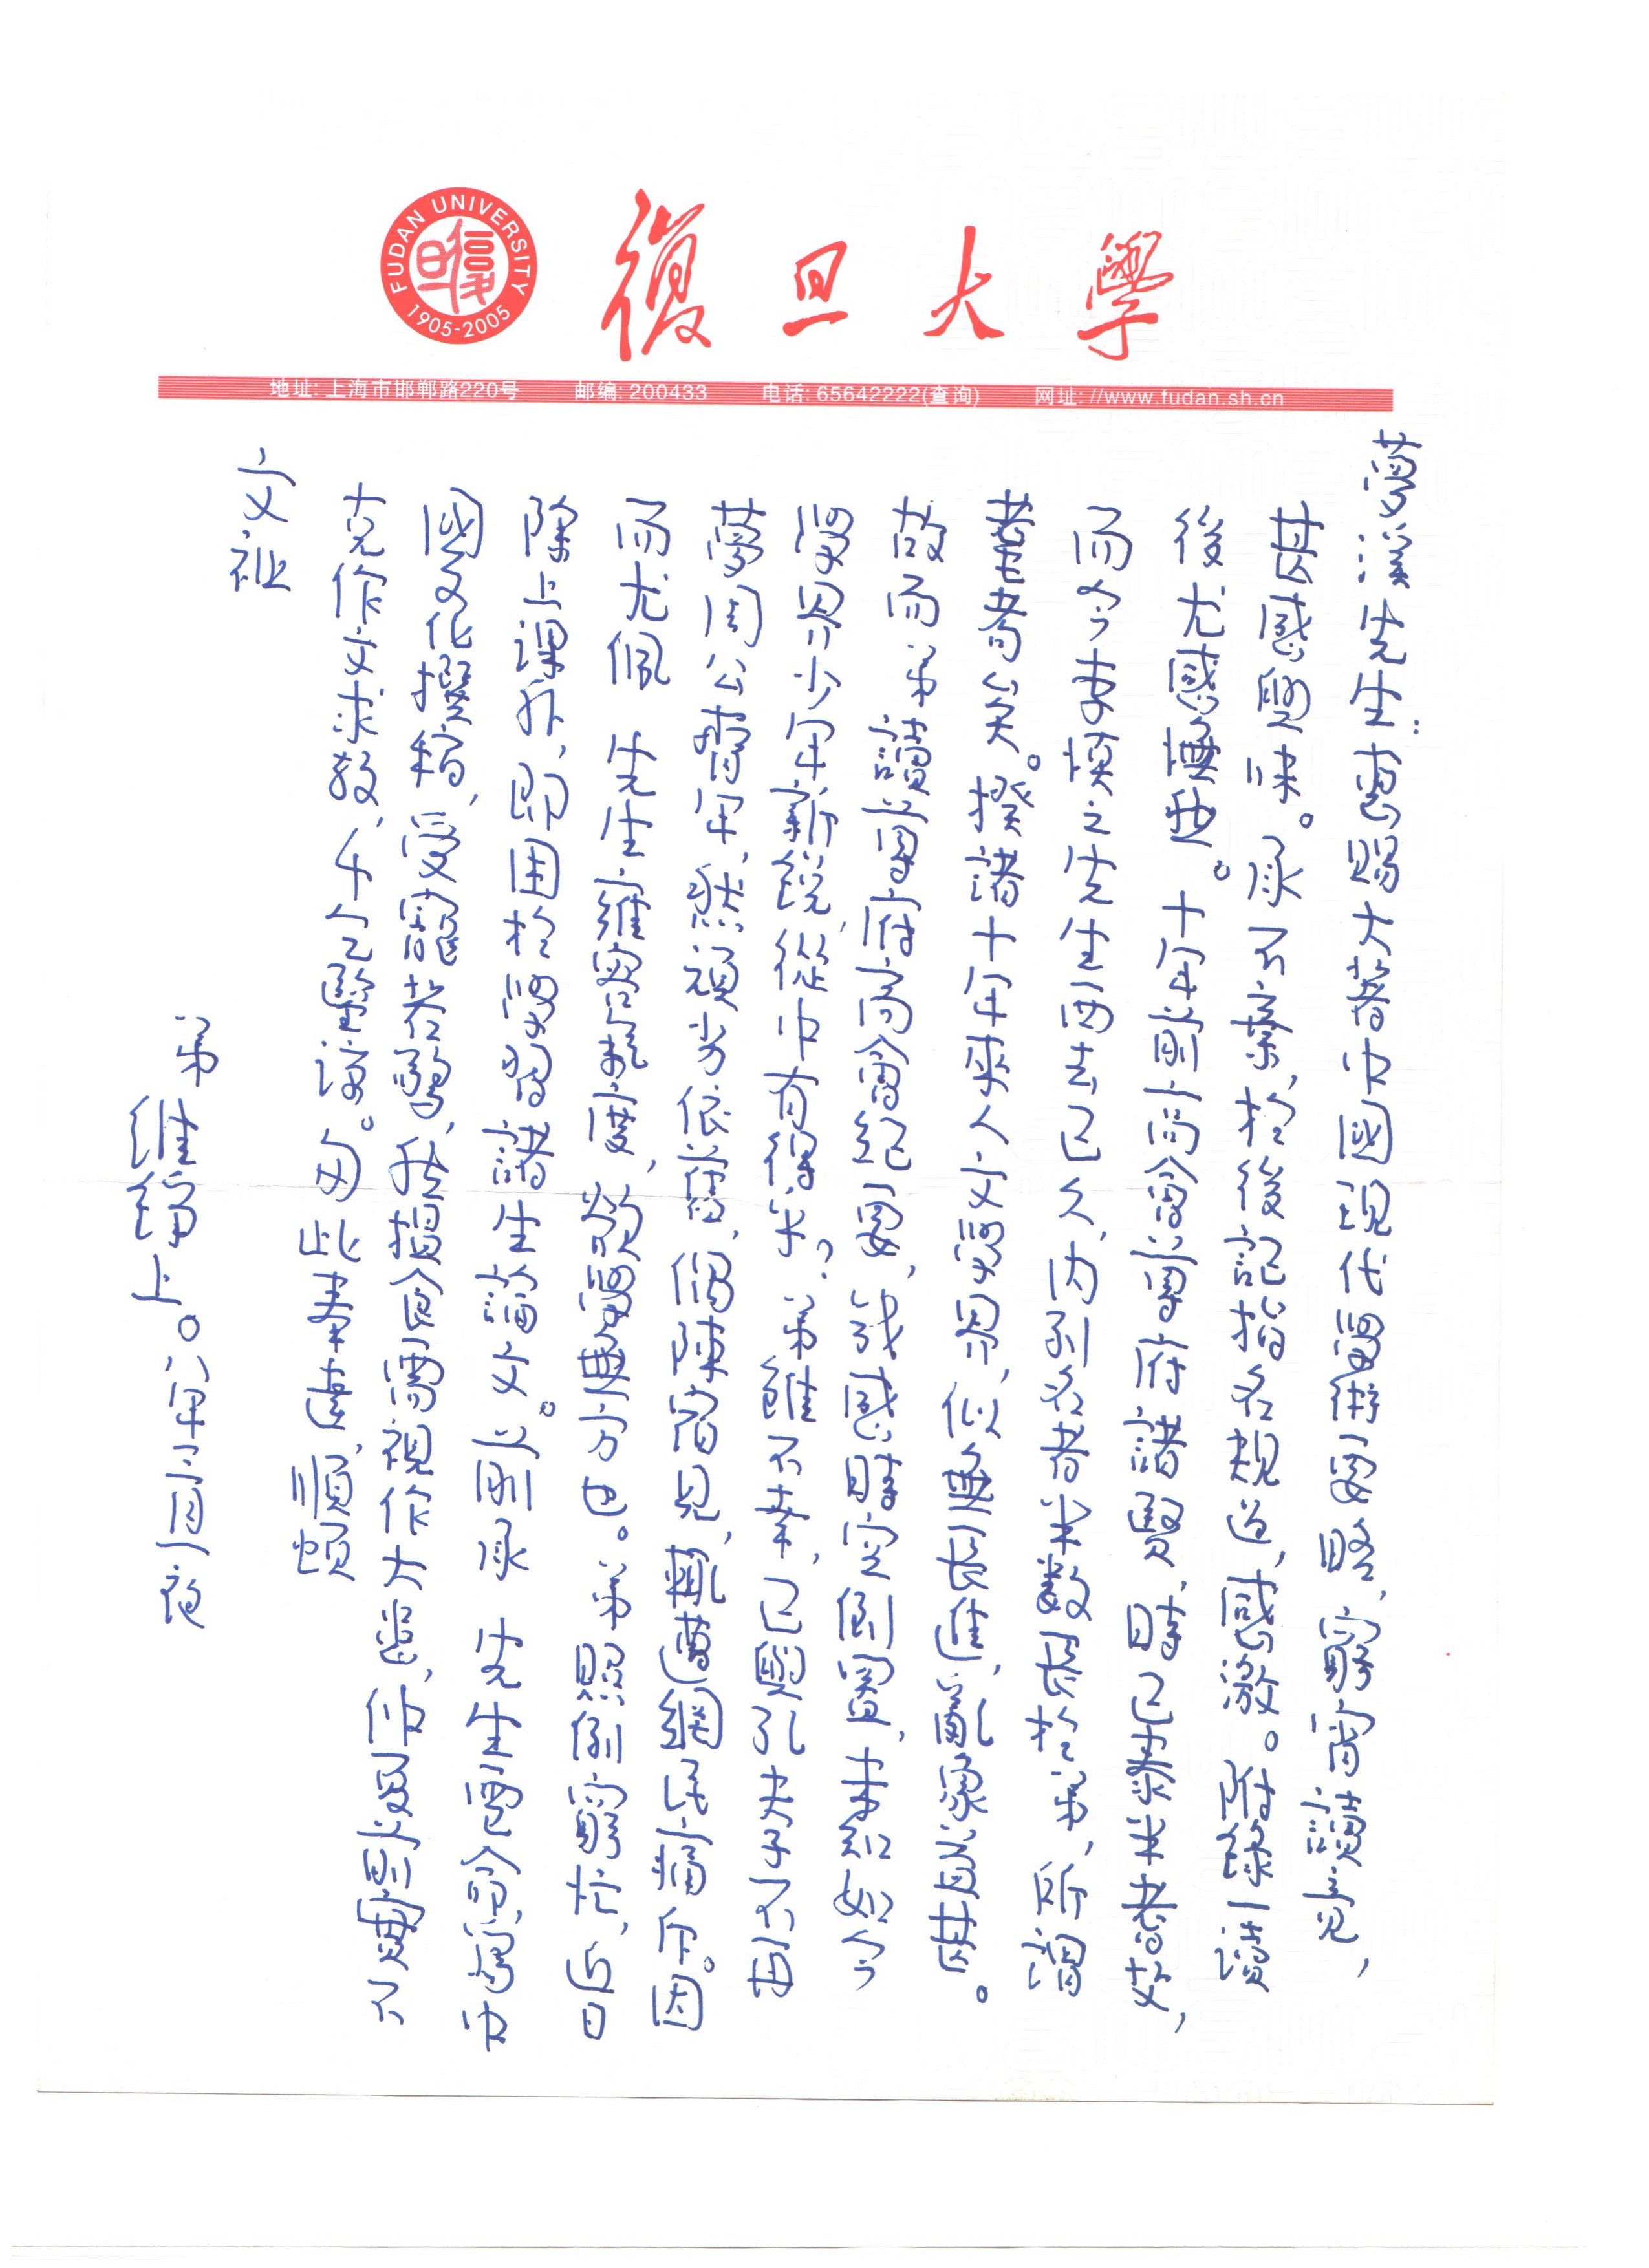 FUDAN UNIVERSITY
1905-2005
復旦大學
地址: 上海市邯郸路220号 邮编: 200433 电话: 65642222(查询) 网址: //www.fudan.sh.cn
夢溪先生：惠賜大著中國現代學術要略，窮宵讀竟，
甚感興味。承不棄，於後記指名規過，感激。附錄一讀
後尤感憮然。十年前商會尊府諸賢，時已泰半耆艾，
而今李慎之先生西去已久，內列名者半數長於弟，所謂
耄耋者矣。揆諸十年來人文學界，似無長進，亂象益甚。
故而弟讀尊府商會紀要，能感時空倒置，未知如今
學界少年新銳，從中有得乎？弟雖不幸，已與孔夫子不再
夢周公齊年，然頑劣依舊，偶陳陋見，輒遭網民痛斥。因
而尤佩 先生雍容氣度，欲學無方也。弟照例窮忙，近日
除上課外，即困於學習諸生論文。前承 先生電命寫中
國文化撰稿，受寵若驚，然損食需視作大患，仲夏前實不
克作文求教，千乞鑒諒。匆此奉達，順頌
文祉
弟 維錚上。〇八年三月一夜